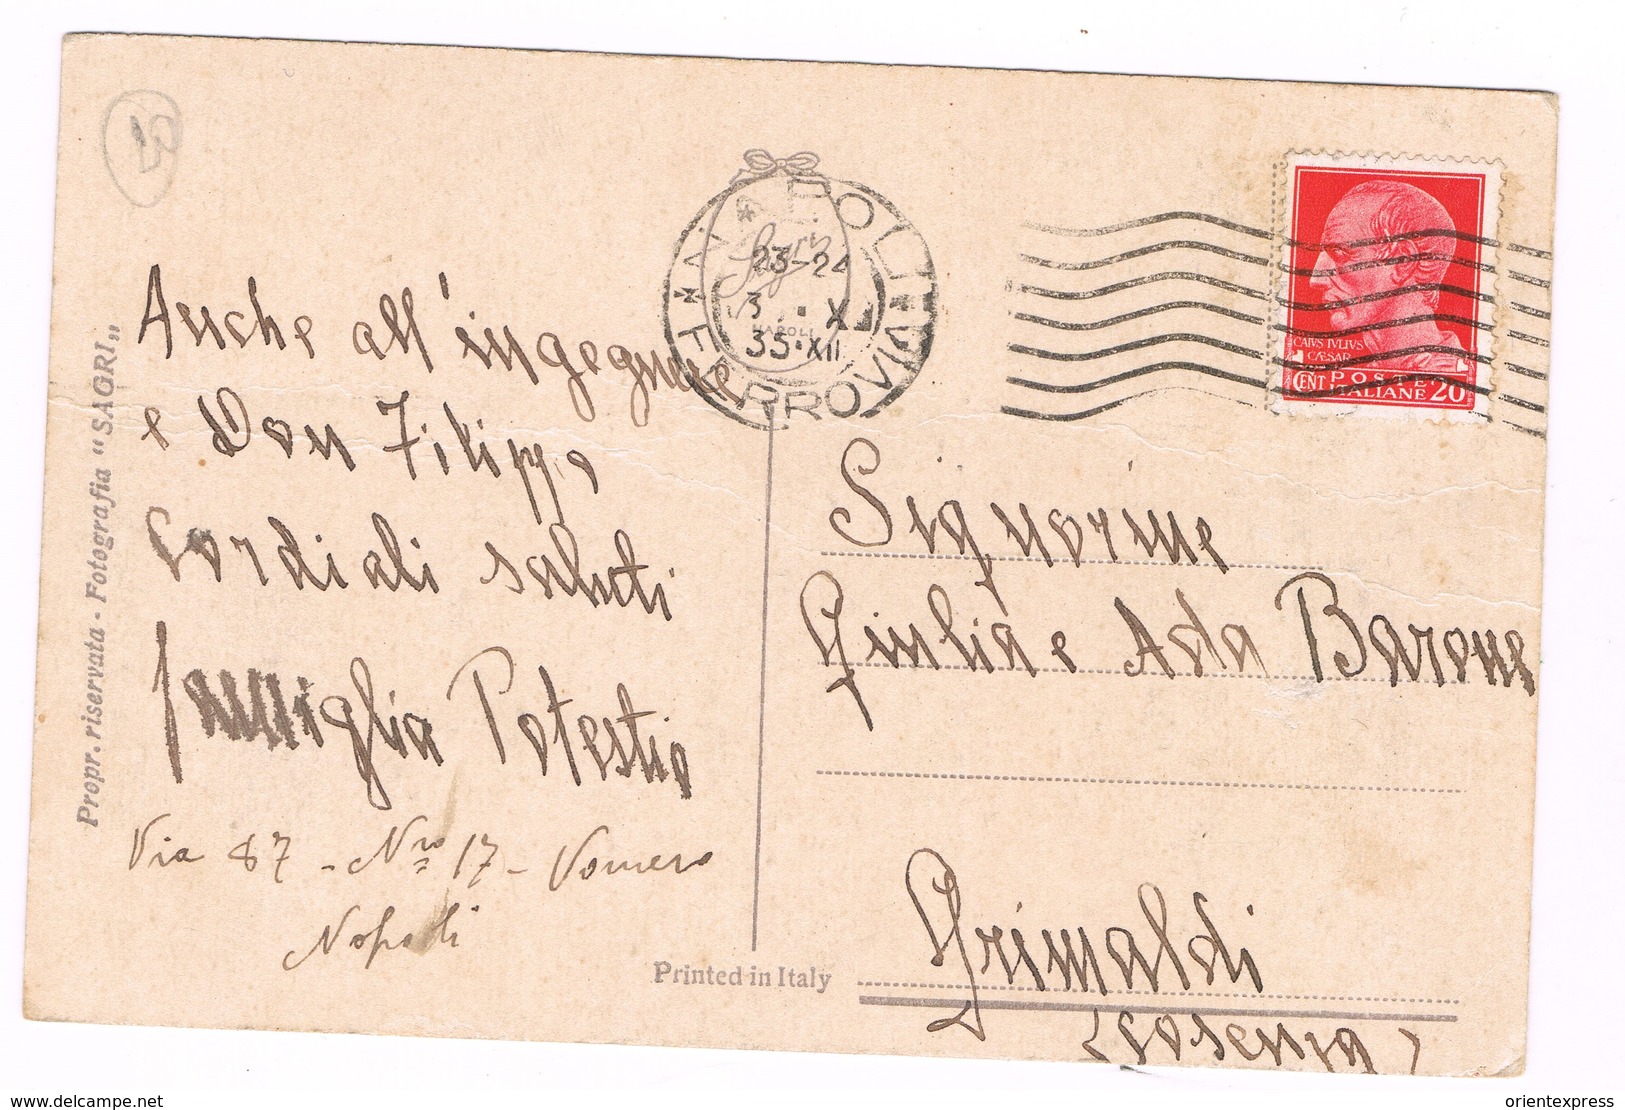 Propr. riservata - Fotografia "SAGRI„
Anche all'ingegnere
e Don Filippo
cordiali saluti
famiglia Potestio
Via 87 - Nro 17 - Vomero
Napoli
NAPOLI
FERROVIA
23-24
3 . X
35 · XII
Sagri
NAPOLI
CAIVS IVLIVS
CÆSAR
CENT POSTE 20
ITALIANE
Signorine
Giulia e Ada Barone
Grimaldi
(Cosenza)
Printed in Italy
delcampe.net
orientexpress